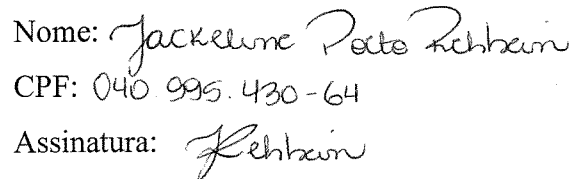 Nome: Jackeline Porto Rehbein
CPF: 040.995.430-64
Assinatura: JRehbein